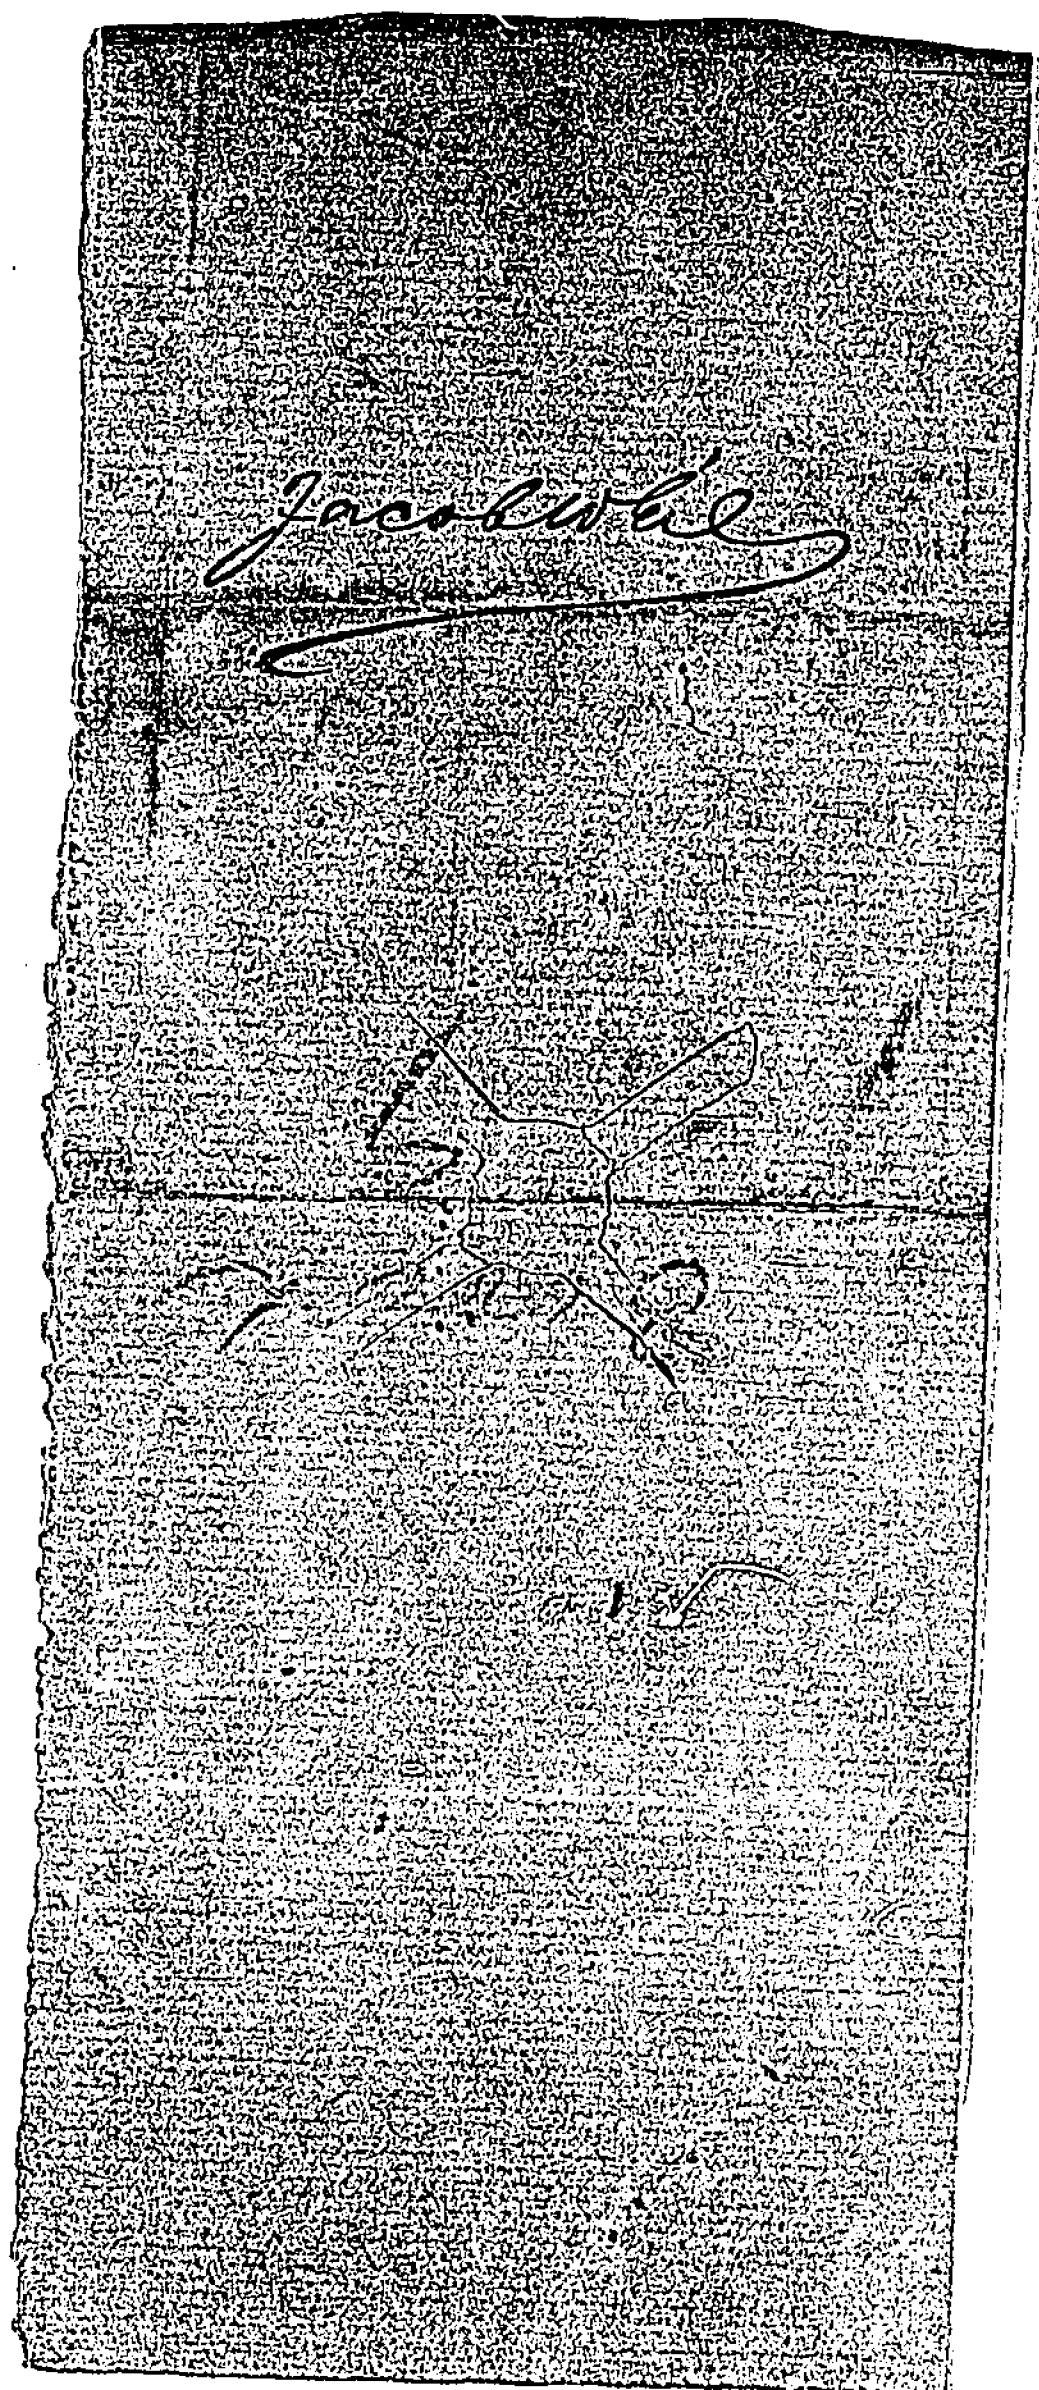 Jacob Weil